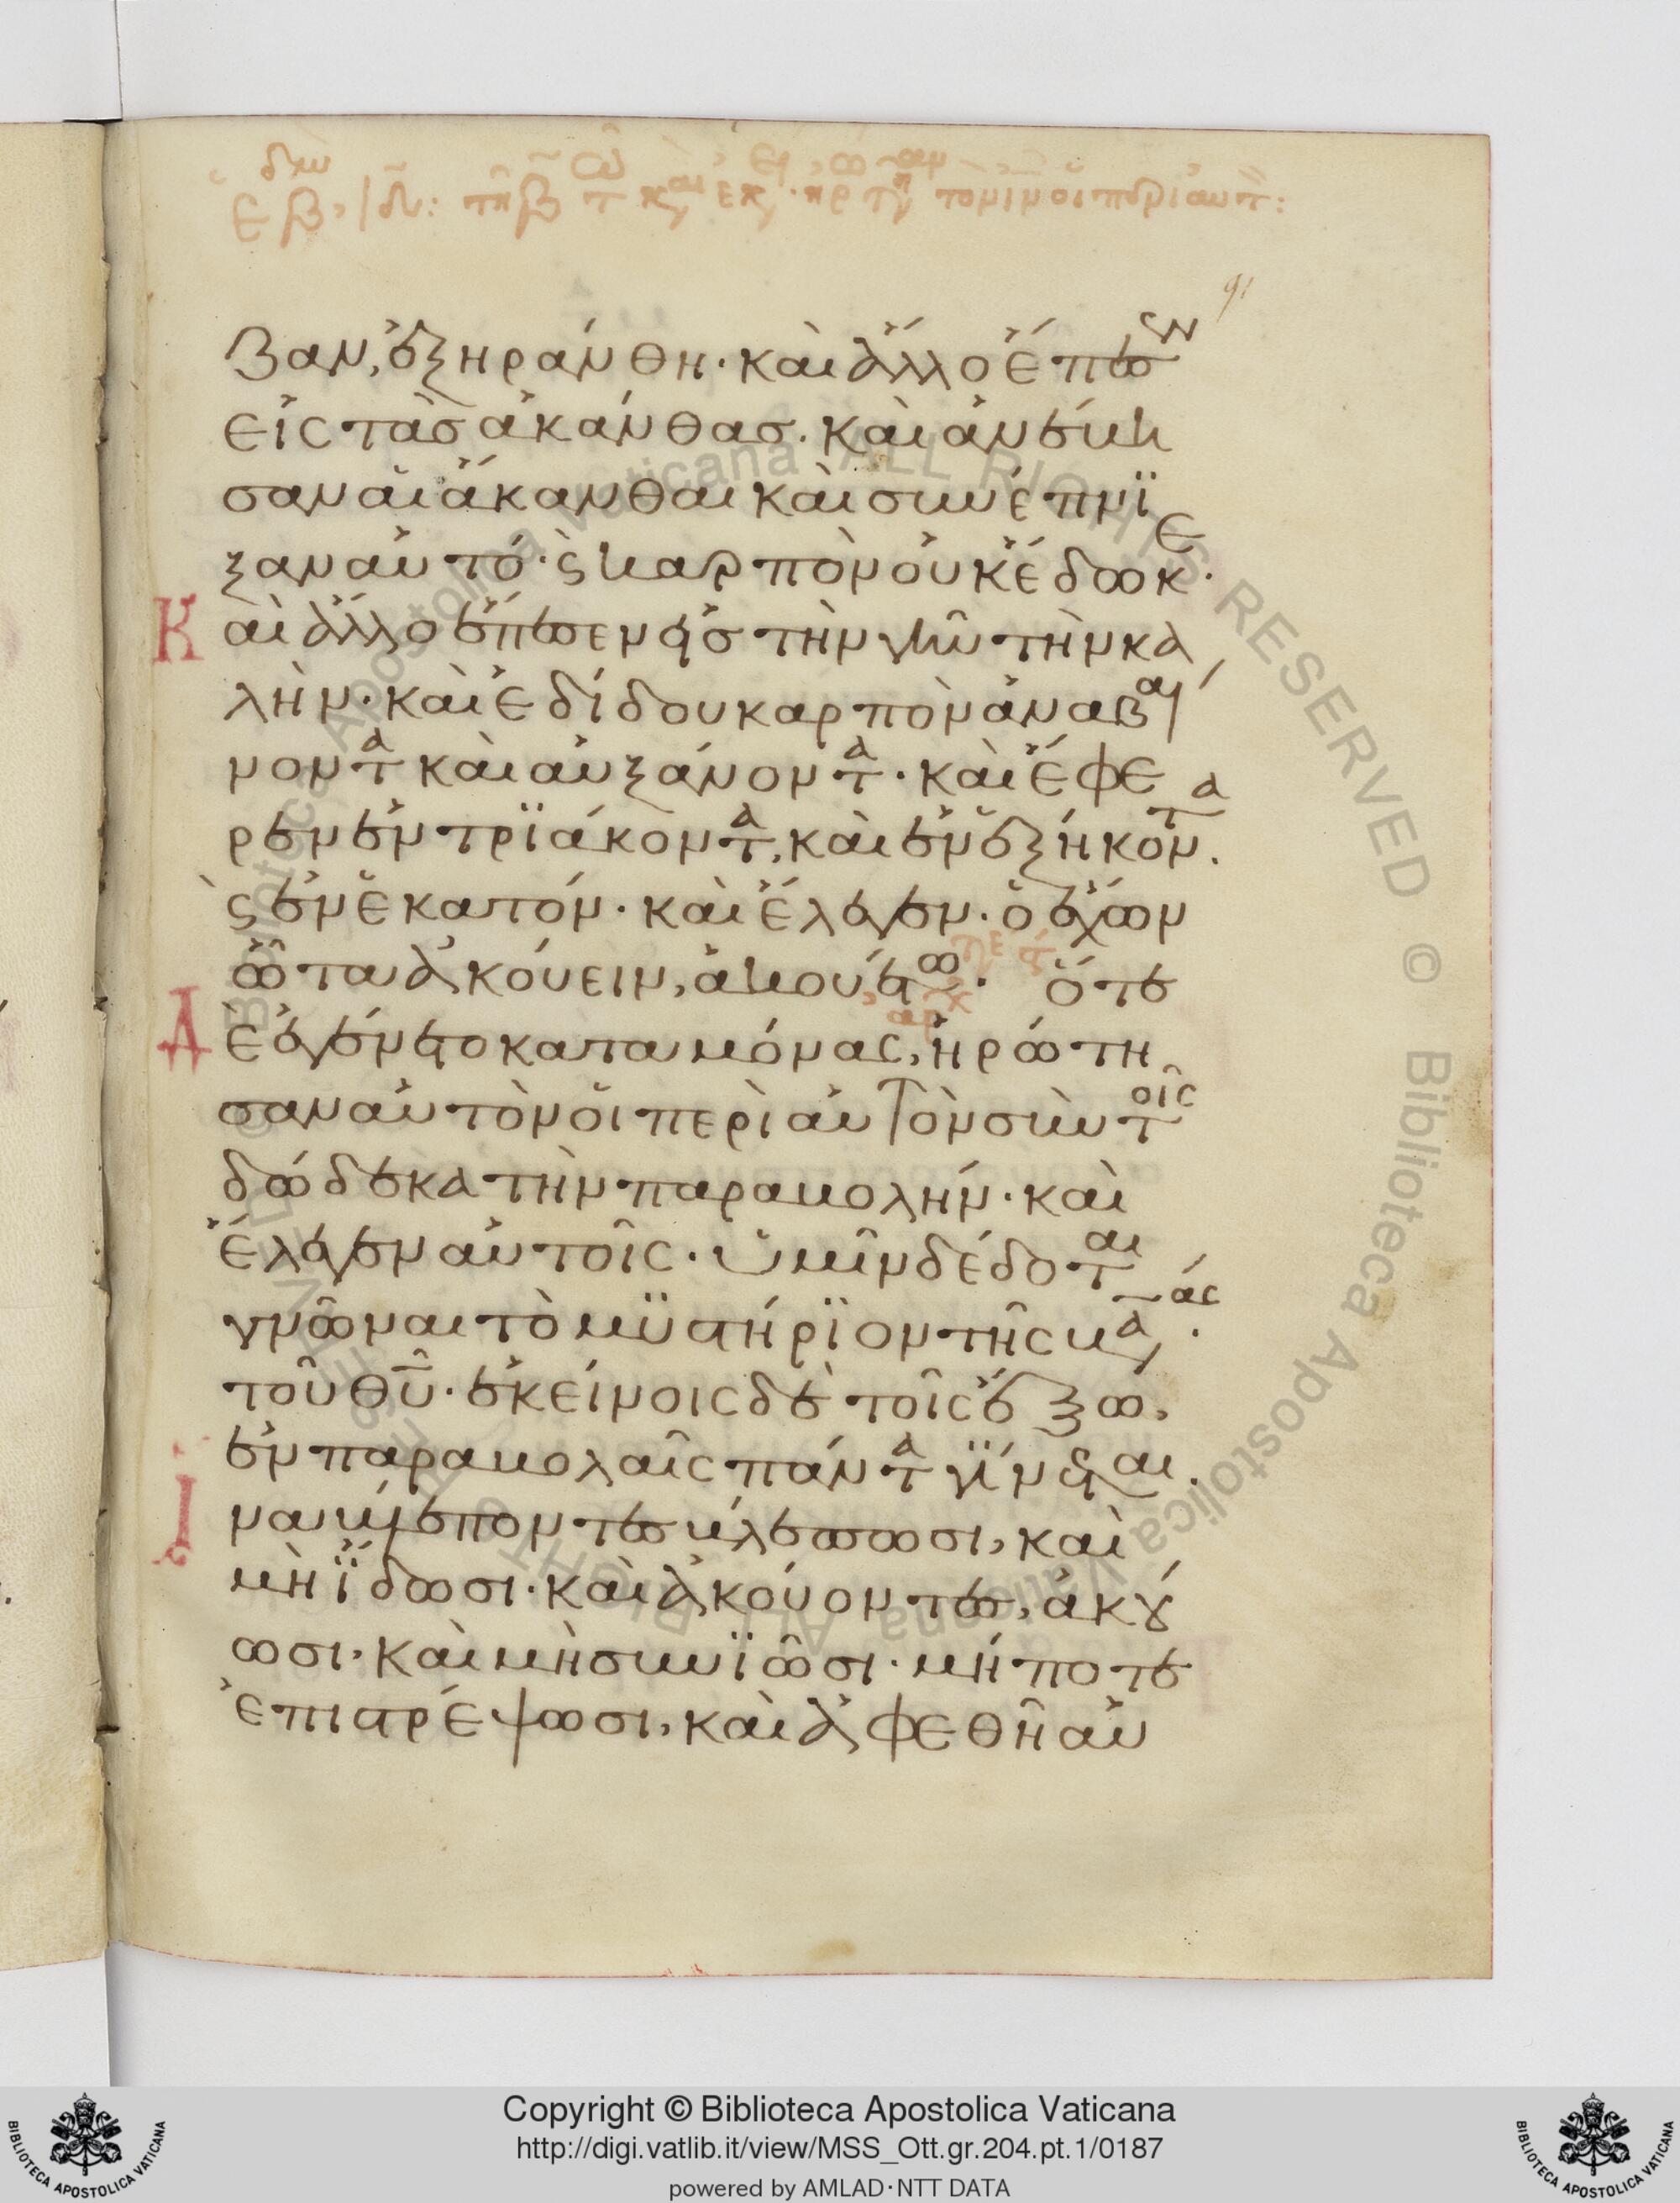 91
ζαν, ἐξηράνθη· καὶ ἄλλο ἔπεσεν
εἰς τὰσ ἀκάνθασ. καὶ ἀνέβη
σαν αἱ ἄκανθαι καὶ συνέπνϊ
ξαν αὐτό· ϛ καρπὸν οὐκ ἔδωκε.
Καὶ ἄλλο ἔπεσεν εἰσ τὴν γῆν τὴν κα
λὴν· καὶ ἐδίδου καρπὸν ἀναβαί
νοντα καὶ αὐξάνοντα· καὶ ἔφε
ρεν ἐν τρϊάκοντα, καὶ ἐν ἑξήκοντα.
ϛ ἐν ἑκατόν· καὶ ἔλεγεν· ὁ ἔχων
ὦτα ἀκούειν, ἀκουέτω· τέλος ὅτε
ἀρχ
Δὲ ἐγένετο καταμόνας, ἠρώτη
σαν αὐτὸν οἱ περὶ αὐτὸν σὺν τοῖς
δώδεκα τὴν παραβολήν· καὶ
ἔλεγεν αὐτοῖς· ὑμῖν δέδοται
γνῶναι τὸ μϋστήρϊον τῆς βασ.
τοῦ θῦ· ἐκείνοις δὲ τοῖς ἔξω,
ἐν παραβολαῖς πάντα γίνεται.
Ἵνα βλέποντες βλέπωσι, καὶ
μὴ ἴδωσι· καὶ ἀκούοντες, ἀκού
ωσι· καὶ μὴ συνϊῶσι· μήποτε
ἐπιστρέψωσι, καὶ ἀφεθῆ αὐ
Copyright © Biblioteca Apostolica Vaticana
http://digi.vatlib.it/view/MSS_Ott.gr.204.pt.1/0187
powered by AMLAD·NTT DATA
BIBLIOTECA APOSTOLICA VATICANA
BIBLIOTECA APOSTOLICA VATICANA